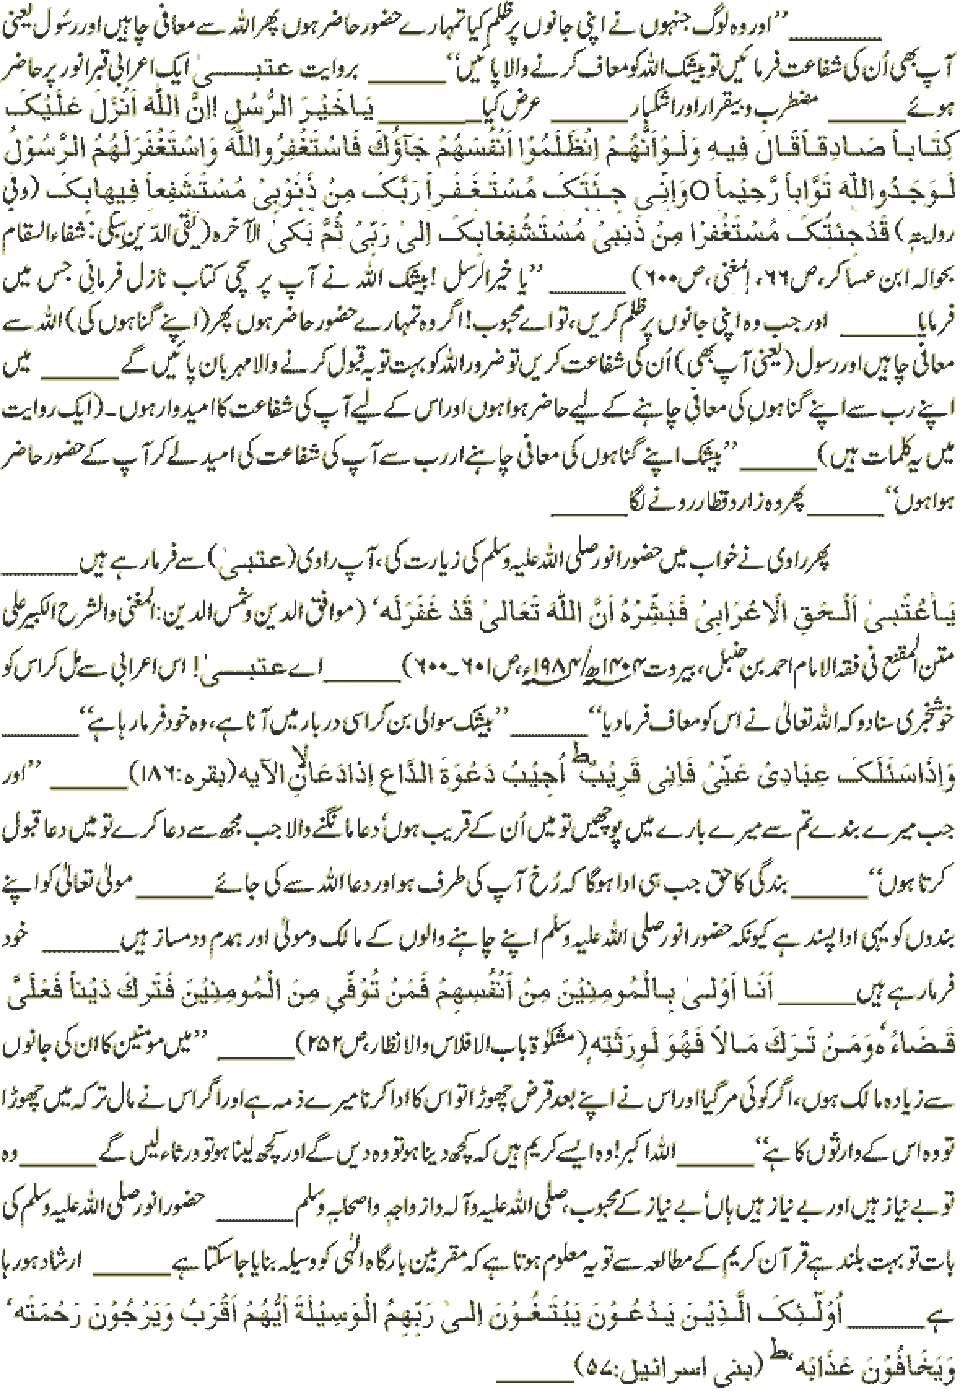 ________ ’’اور وہ لوگ جنہوں نے اپنی جانوں پر ظلم کیا تمہارے حضور حاضر ہوں پھر اللہ سے معافی چاہیں اور رسول یعنی
آپ بھی اُن کی شفاعت فرمائیں تو بیشک اللہ کو معاف کرنے والا پائیں‘‘ ______ بروایت عتبیٰ ایک اعرابی قبر انور پر حاضر
ہوئے ______ مضطرب و بیقرار اور اشکبار ______ عرض کیا ________ یَاخَیْرَ الرُّسُلِ !اِنَّ اللّٰہَ اَنْزَلَ عَلَیْکَ
کِتَاباً صَادِقاًقَالَ فِیہِ وَلَوْاَنَّهُمْ اِنْظَلَمُوْا اَنْفُسَهُمْ جَآؤُكَ فَاسْتَغْفِرُواللّٰہَ وَاسْتَغْفَرَلَهُمُ الرَّسُوْلُ
لَوَجَدُواللّٰہَ تَوَّاباً رَّحِیْماً ۝ وَاِنِّی جِئْتُکَ مُسْتَغْفِراً رَبَّکَ مِنْ ذُنُوْبِیْ مُسْتَشْفِعاً فِیهَابِکَ (وفی
روایتہٍ) قَدْجِئْتُکَ مُسْتَغْفِرًا مِنْ ذَنْبِیْ مُسْتَشْفِعَابِکَ اِلیٰ رَبِّیْ ثُمَّ بَکیٰ الآخرہ (تقی الدّین سبکی: شفاء السقام
بحوالہ ابن عساکر،ص۶۶، المغنی،ص۶۰۰) ______ ’’یا خیر الرسل !بیشک اللہ نے آپ پر سچی کتاب نازل فرمائی جس میں
فرمایا ______ اور جب وہ اپنی جانوں پر ظلم کریں، تو اے محبوب! اگر وہ تمہارے حضور حاضر ہوں پھر (اپنے گناہوں کی) اللہ سے
معافی چاہیں اور رسول (یعنی آپ بھی) اُن کی شفاعت کریں تو ضرور اللہ کو بہت توبہ قبول کرنے والا مہربان پائیں گے ______ میں
اپنے رب سے اپنے گناہوں کی معافی چاہنے کے لیے حاضر ہوا ہوں اور اس کے لیے آپ کی شفاعت کا امیدوار ہوں۔(ایک روایت
میں یہ کلمات ہیں) ______ ’’بیشک اپنے گناہوں کی معافی چاہنے اور رب سے آپ کی شفاعت کی امید لے کر آپ کے حضور حاضر
ہوا ہوں‘‘ ______ پھر وہ زار و قطار رونے لگا ______
پھر راوی نے خواب میں حضور انور صلی اللہ علیہ وسلم کی زیارت کی، آپ راوی (عتبیٰ) سے فرما رہے ہیں ______
یَاعُتْبیٰ اَلْحَقِ الْاَعْرَابِیْ فَبَشِّرْہُ اَنَّ اللّٰہَ تَعَالیٰ قَدْ غَفَرَلَه‘ (موافق الدین و شمس الدین: المغنی والشرح الکبیر علی
متن المقنع فی فقہ الامام احمد بن حنبل، بیروت ۱۴۰۴ھ/۱۹۸۴ء، ص۶۰۱۔۶۰۰) ______ اے عتبیٰ! اس اعرابی سے مل کر اس کو
خوشخبری سنا دو کہ اللہ تعالیٰ نے اس کو معاف فرما دیا‘‘ ______ ’’بیشک سوالی بن کر اسی دربار میں آنا ہے، وہ خود فرما رہا ہے‘‘ ______
وَاِذَاسَئَلَکَ عِبَادِیْ عَنِّیْ فَاِنِی قَرِیْبٌ ط اُجِیْبُ دَعْوَةَ الدَّاعِ اِذَادَعَانِ لا الآیہ (بقرہ:۱۸۶) ______ ’’اور
جب میرے بندے تم سے میرے بارے میں پوچھیں تو میں اُن کے قریب ہوں، دعا مانگنے والا جب مجھ سے دعا کرے تو میں دعا قبول
کرتا ہوں‘‘ ______ بندگی کا حق جب ہی ادا ہوگا کہ رُخ آپ کی طرف ہو اور دعا اللہ سے کی جائے ______ مولیٰ تعالیٰ کو اپنے
بندوں کو یہی ادا پسند ہے کیونکہ حضور انور صلی اللہ علیہ وسلم اپنے چاہنے والوں کے مالک و مولیٰ اور ہمدم و دمساز ہیں ______ خود
فرما رہے ہیں ______ اَنَا اَوْلیٰ بِالْمُومِنِیْنَ مِنْ اَنْفُسِهِمْ فَمَنْ تُوْفّیِ مِنَ الْمُومِنِیْنَ فَتَرِكَ دَیْناً فَعَلَیَّ
قَضَاءُہ‘ وَمَنْ تَرَكَ مَالاً فَهُوَ لَوِرَثَتِهِ (مشکوٰۃ باب الافلاس والانظار،ص۲۵۲) ______ ’’میں مومنین کا ان کی جانوں
سے زیادہ مالک ہوں، اگر کوئی مر گیا اور اس نے اپنے بعد قرض چھوڑا تو اس کا ادا کرنا میرے ذمہ ہے اور اگر اس نے مال ترکہ میں چھوڑا
تو وہ اس کے وارثوں کا ہے‘‘ ______ اللہ اکبر! وہ ایسے کریم ہیں کہ کچھ دینا ہو تو وہ دیں گے اور کچھ لینا ہو تو ورثاء لیں گے ______ وہ
تو بے نیاز ہیں اور بے نیاز ہیں ہاں! بے نیاز کے محبوب، صلی اللہ علیہ وآلہ وازواجہٖ واصحابہٖ وسلم ______ حضور انور صلی اللہ علیہ وسلم کی
بات تو بہت بلند ہے قرآن کریم کے مطالعہ سے تو یہ معلوم ہوتا ہے کہ مقربین بارگاہ الٰہی کو وسیلہ بنایا جا سکتا ہے ______ ارشاد ہو رہا
ہے ______ اُوْلٰٓئِکَ الَّذِیْنَ یَدْعُوْنَ یَبْتَغُوْنَ اِلیٰ رَبِّهِمُ الْوَسِیْلَةَ اَیُّهُمْ اَقْرَبُ وَیَرْجُوْنَ رَحْمَتَه‘
وَیَخَافُوْنَ عَذَابَه‘ ط (بنی اسرائیل:۵۷) ______